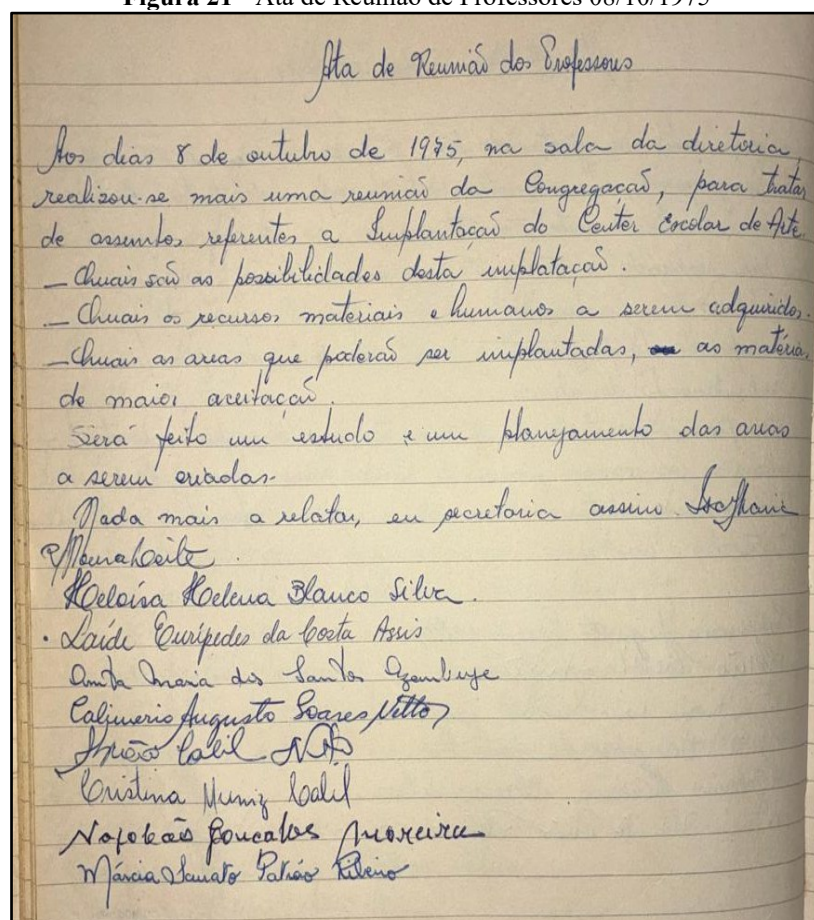 Figura 21 - Ata de Reunião de Professores 08/10/1975
Ata de Reunião dos Professores
Aos dias 8 de outubro de 1975, na sala da diretoria,
realizou-se mais uma reunião da Congregação, para tratar
de assuntos referentes a Implantação do Center Escolar de Arte.
— Quais são as possibilidades desta implatação.
— Quais os recursos materiais e humanos a serem adquiridos.
— Quais as areas que poderão ser implantadas, as matérias
de maior aceitação.
Será feito um estudo e um planejamento das areas
a serem criadas.
Nada mais a relatar, eu secretaria assino
Moura Leite.
Heloísa Helena Blanco Silva.
Laíde Eurípedes da Costa Assis
Anita Maria dos Santos Azambuja
Calimerio Augusto Soares Netto
Calil
Cristina Muniz Calil
Napoleão Gonçalves Moreira
Márcia Ribeiro